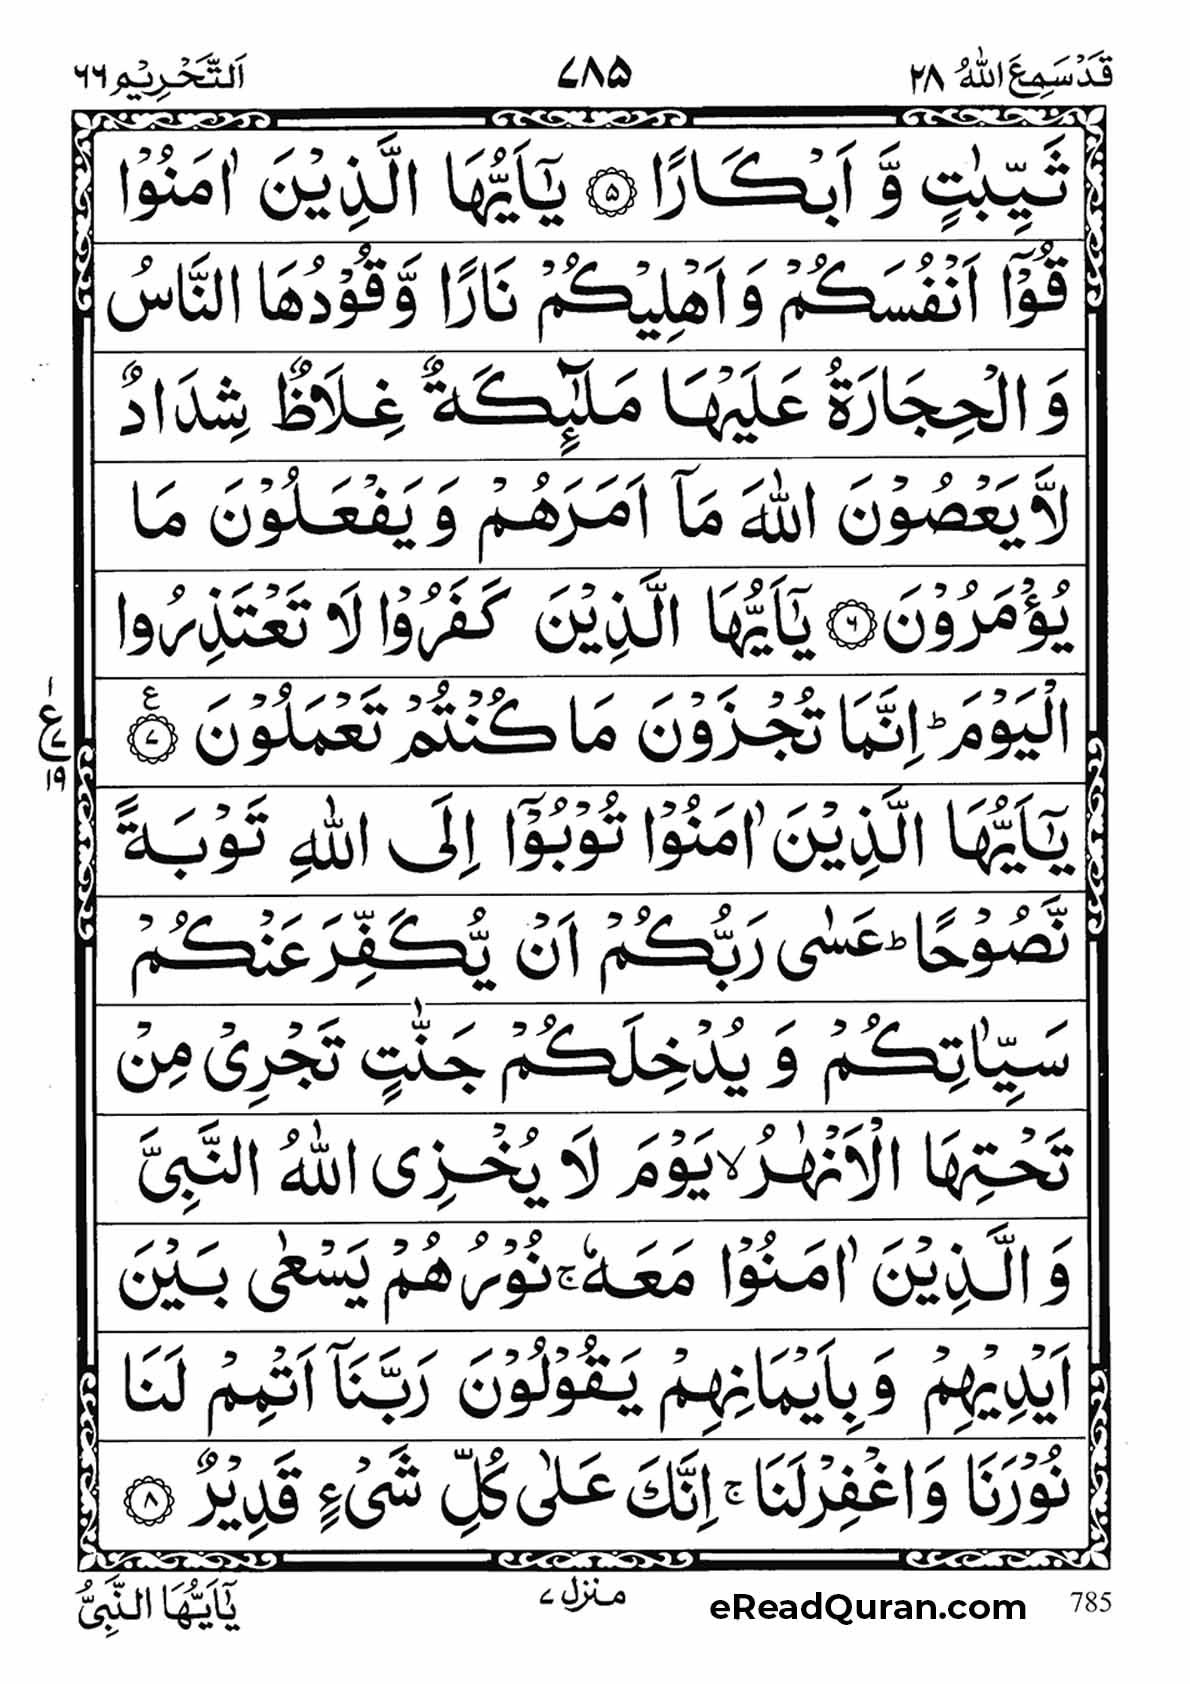 قَدْ سَمِعَ اللّٰهُ ٢٨
٧٨٥
اَلتَّحْرِيْم ٦٦
ثَيِّبٰتٍ وَّ اَبْكَارًا ۝٥ يٰۤاَيُّهَا الَّذِيْنَ اٰمَنُوْا
قُوْۤا اَنْفُسَكُمْ وَ اَهْلِيْكُمْ نَارًا وَّقُوْدُهَا النَّاسُ
وَ الْحِجَارَةُ عَلَيْهَا مَلٰٓئِكَةٌ غِلَاظٌ شِدَادٌ
لَّا يَعْصُوْنَ اللّٰهَ مَاۤ اَمَرَهُمْ وَ يَفْعَلُوْنَ مَا
يُؤْمَرُوْنَ ۝٦ يٰۤاَيُّهَا الَّذِيْنَ كَفَرُوْا لَا تَعْتَذِرُوا
الْيَوْمَ ؕ اِنَّمَا تُجْزَوْنَ مَا كُنْتُمْ تَعْمَلُوْنَ ۝٧ ع
١ ع ٧ ١٩
يٰۤاَيُّهَا الَّذِيْنَ اٰمَنُوْا تُوْبُوْۤا اِلَى اللّٰهِ تَوْبَةً
نَّصُوْحًا ؕ عَسٰى رَبُّكُمْ اَنْ يُّكَفِّرَ عَنْكُمْ
سَيِّاٰتِكُمْ وَ يُدْخِلَكُمْ جَنّٰتٍ تَجْرِيْ مِنْ
تَحْتِهَا الْاَنْهٰرُ ۙ يَوْمَ لَا يُخْزِى اللّٰهُ النَّبِيَّ
وَ الَّذِيْنَ اٰمَنُوْا مَعَهٗ ۚ نُوْرُهُمْ يَسْعٰى بَيْنَ
اَيْدِيْهِمْ وَ بِاَيْمَانِهِمْ يَقُوْلُوْنَ رَبَّنَاۤ اَتْمِمْ لَنَا
نُوْرَنَا وَ اغْفِرْ لَنَا ۚ اِنَّكَ عَلٰى كُلِّ شَيْءٍ قَدِيْرٌ ۝٨
785
eReadQuran.com
منزل ٧
يٰۤاَيُّهَا النَّبِيُّ